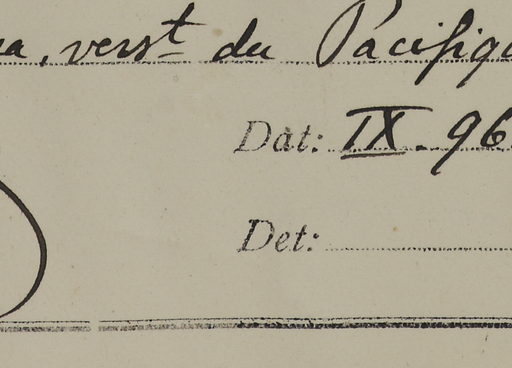 verst du Pacifiqu
Dat: IX. 96
Det: